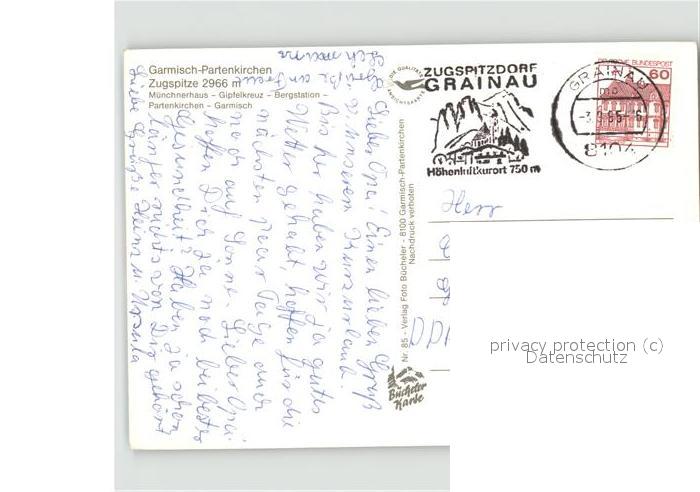 Garmisch-Partenkirchen
Zugspitze 2966 m
Münchnerhaus - Gipfelkreuz - Bergstation -
Partenkirchen - Garmisch
DIE QUALITÄTS
ANSICHTSKARTE
ZUGSPITZDORF
GRAINAU
Höhenluftkurort 750 m
GRAINAU
8104
DEUTSCHE BUNDESPOST
60
Lieber Opa! Einen lieben Gruß
unserem Kurzurlaub.
Bisher haben wir ja gutes
Wetter gehabt, hoffen für die
nächsten paar Tage auch
noch auf Sonne. Lieber Opa
hoffen Dich ja noch bei bester
Gesundheit? Haben ja schon
länger nichts von Dir gehört
Liebe Grüße Heinz u. Ursula
Nr. 85 - Verlag Foto Bücheler - 8100 Garmisch-Partenkirchen
Nachdruck verboten
Bücheler
Karte
Herr
DD
privacy protection (c)
Datenschutz